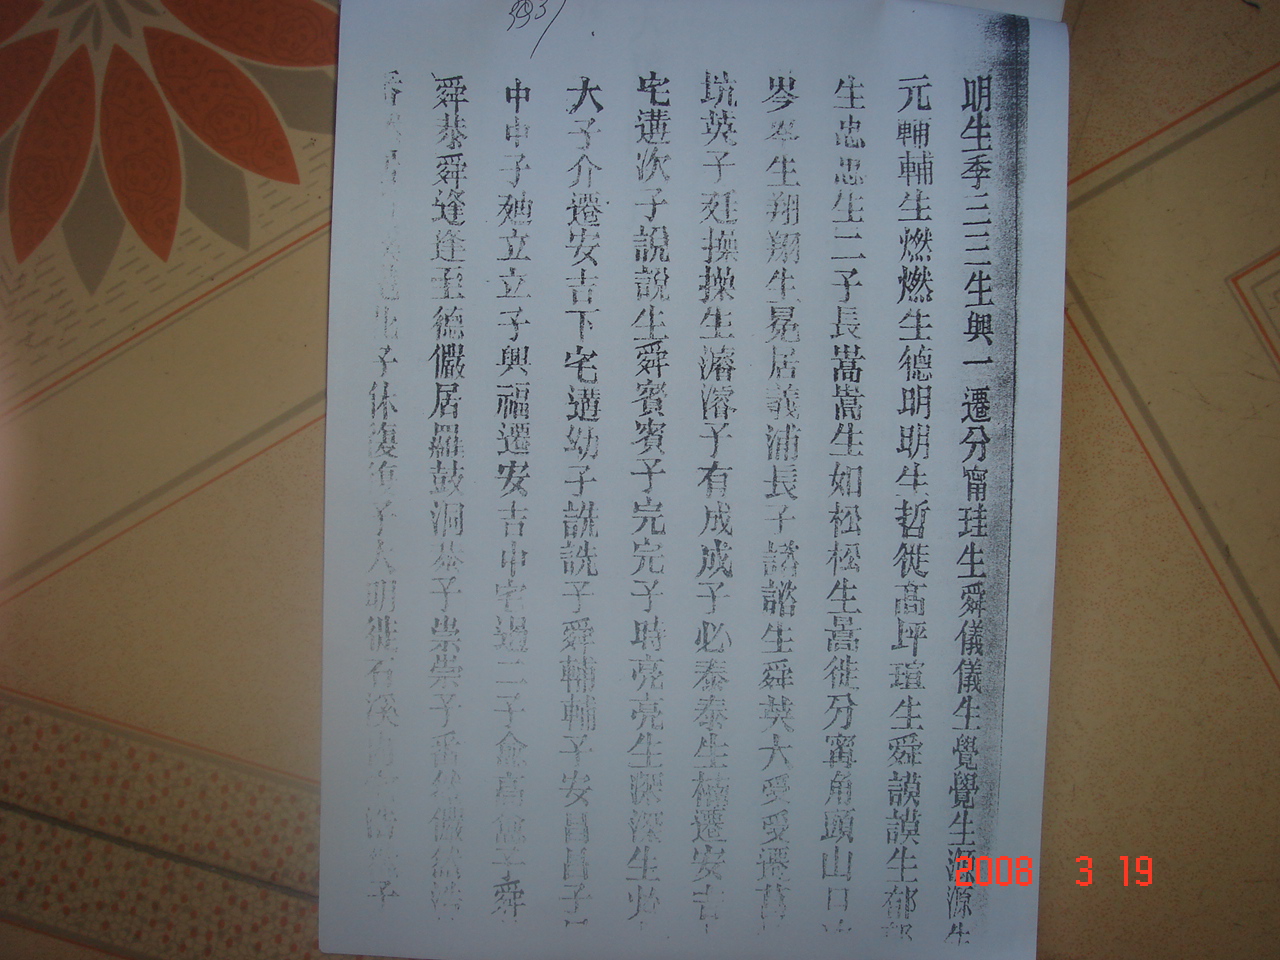 明生季三三生興一遷分甯珪生舜儀儀生覺覺生源源生
元輔輔生燃燃生德明明生哲徙高坪瑄生舜謨謨生郁
生忠忠生二子長嵩嵩生如松松生暠徙分甯角頭山口
岑岑生翔翔生冕居義浦長子諮諮生舜英大受受遷
坑英子廷操操生濬濬子有成成子必泰泰生禧遷安吉
宅遘次子說說生舜賓賓子完完子時亮亮生深深生
大子介遷安吉下宅遘幼子詵詵子舜輔輔子安昌昌子
中中子廸立立子興福遷安吉中宅過二子愈高愈子舜
舜恭舜逢逢至德儼居羅鼓洞恭子崇崇子番
子休復復子大明徙石溪
2008 3 19